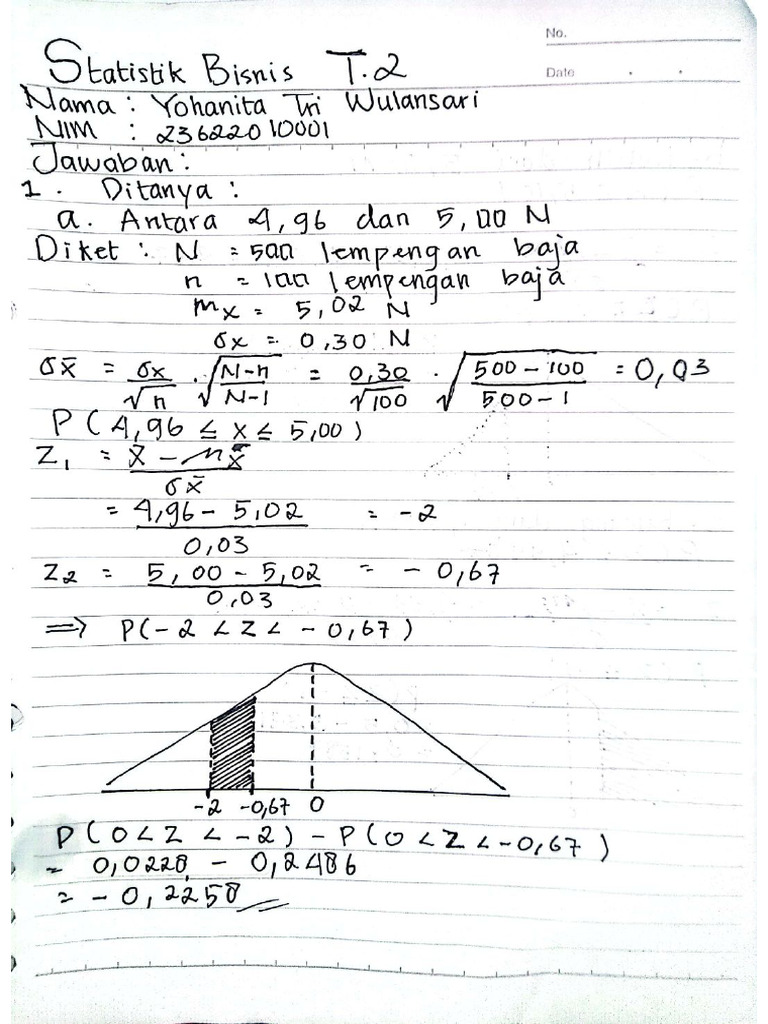 No.
Date
Statistik Bisnis T.2
Nama : Yohanita Tri Wulansari
NIM : 23622010001
Jawaban :
1. Ditanya :
a. Antara 4,96 dan 5,00 N
Diket : N = 500 lempengan baja
n = 100 lempengan baja
mx = 5,02 N
σx = 0,30 N
σx̄ = σx/√n . √(N-n/N-1) = 0,30/√100 . √(500-100/500-1) = 0,03
P ( 4,96 ≤ x ≤ 5,00 )
Z1 = x̄ - mx̄ / σx̄
= 4,96 - 5,02 / 0,03 = -2
Z2 = 5,00 - 5,02 / 0,03 = - 0,67
⇒ P(-2 < Z < - 0,67)
-2 -0,67 0
P ( 0 < Z < -2 ) - P ( 0 < Z < -0,67 )
= 0,0228 - 0,2486
= - 0,2258